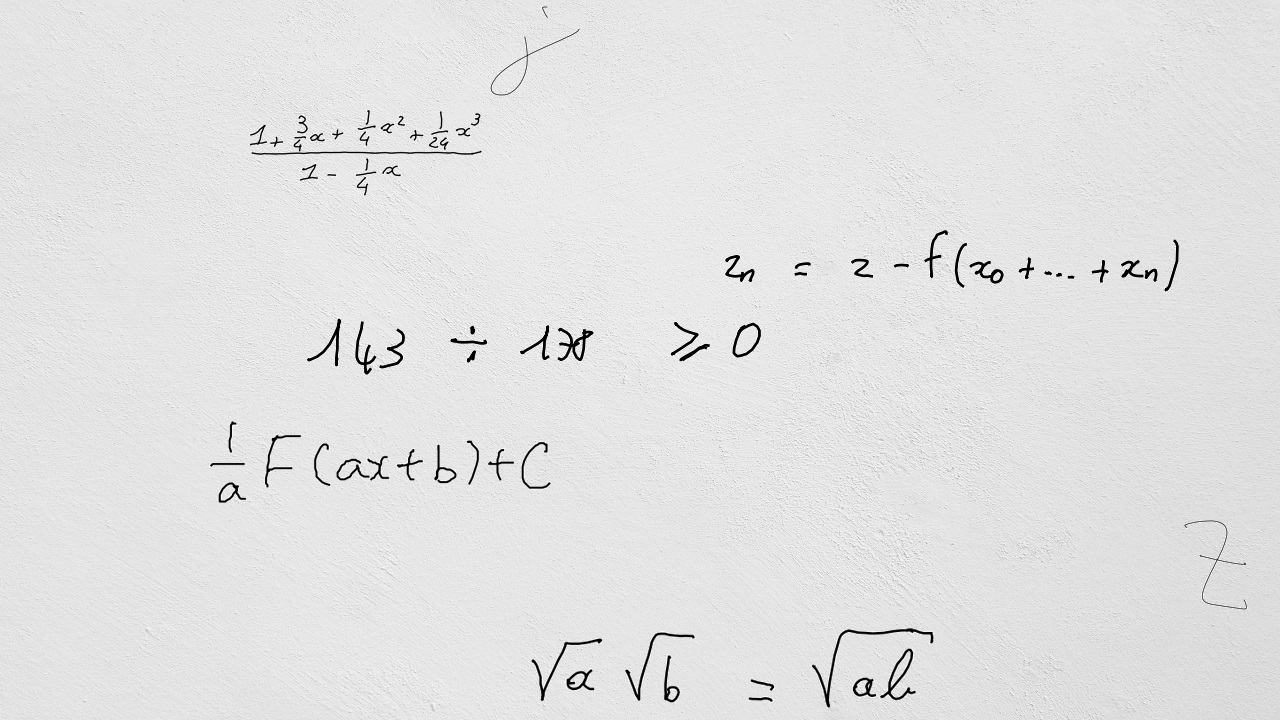 j
\frac{1+\frac{3}{4}x+\frac{1}{4}x^2+\frac{1}{24}x^3}{1-\frac{1}{4}x}
z_n = z - f(x_0 + ... + x_n)
143 ÷ 178 ≥ 0
\frac{1}{a} F(ax+b)+C
z
\sqrt{a} \sqrt{b} = \sqrt{ab}